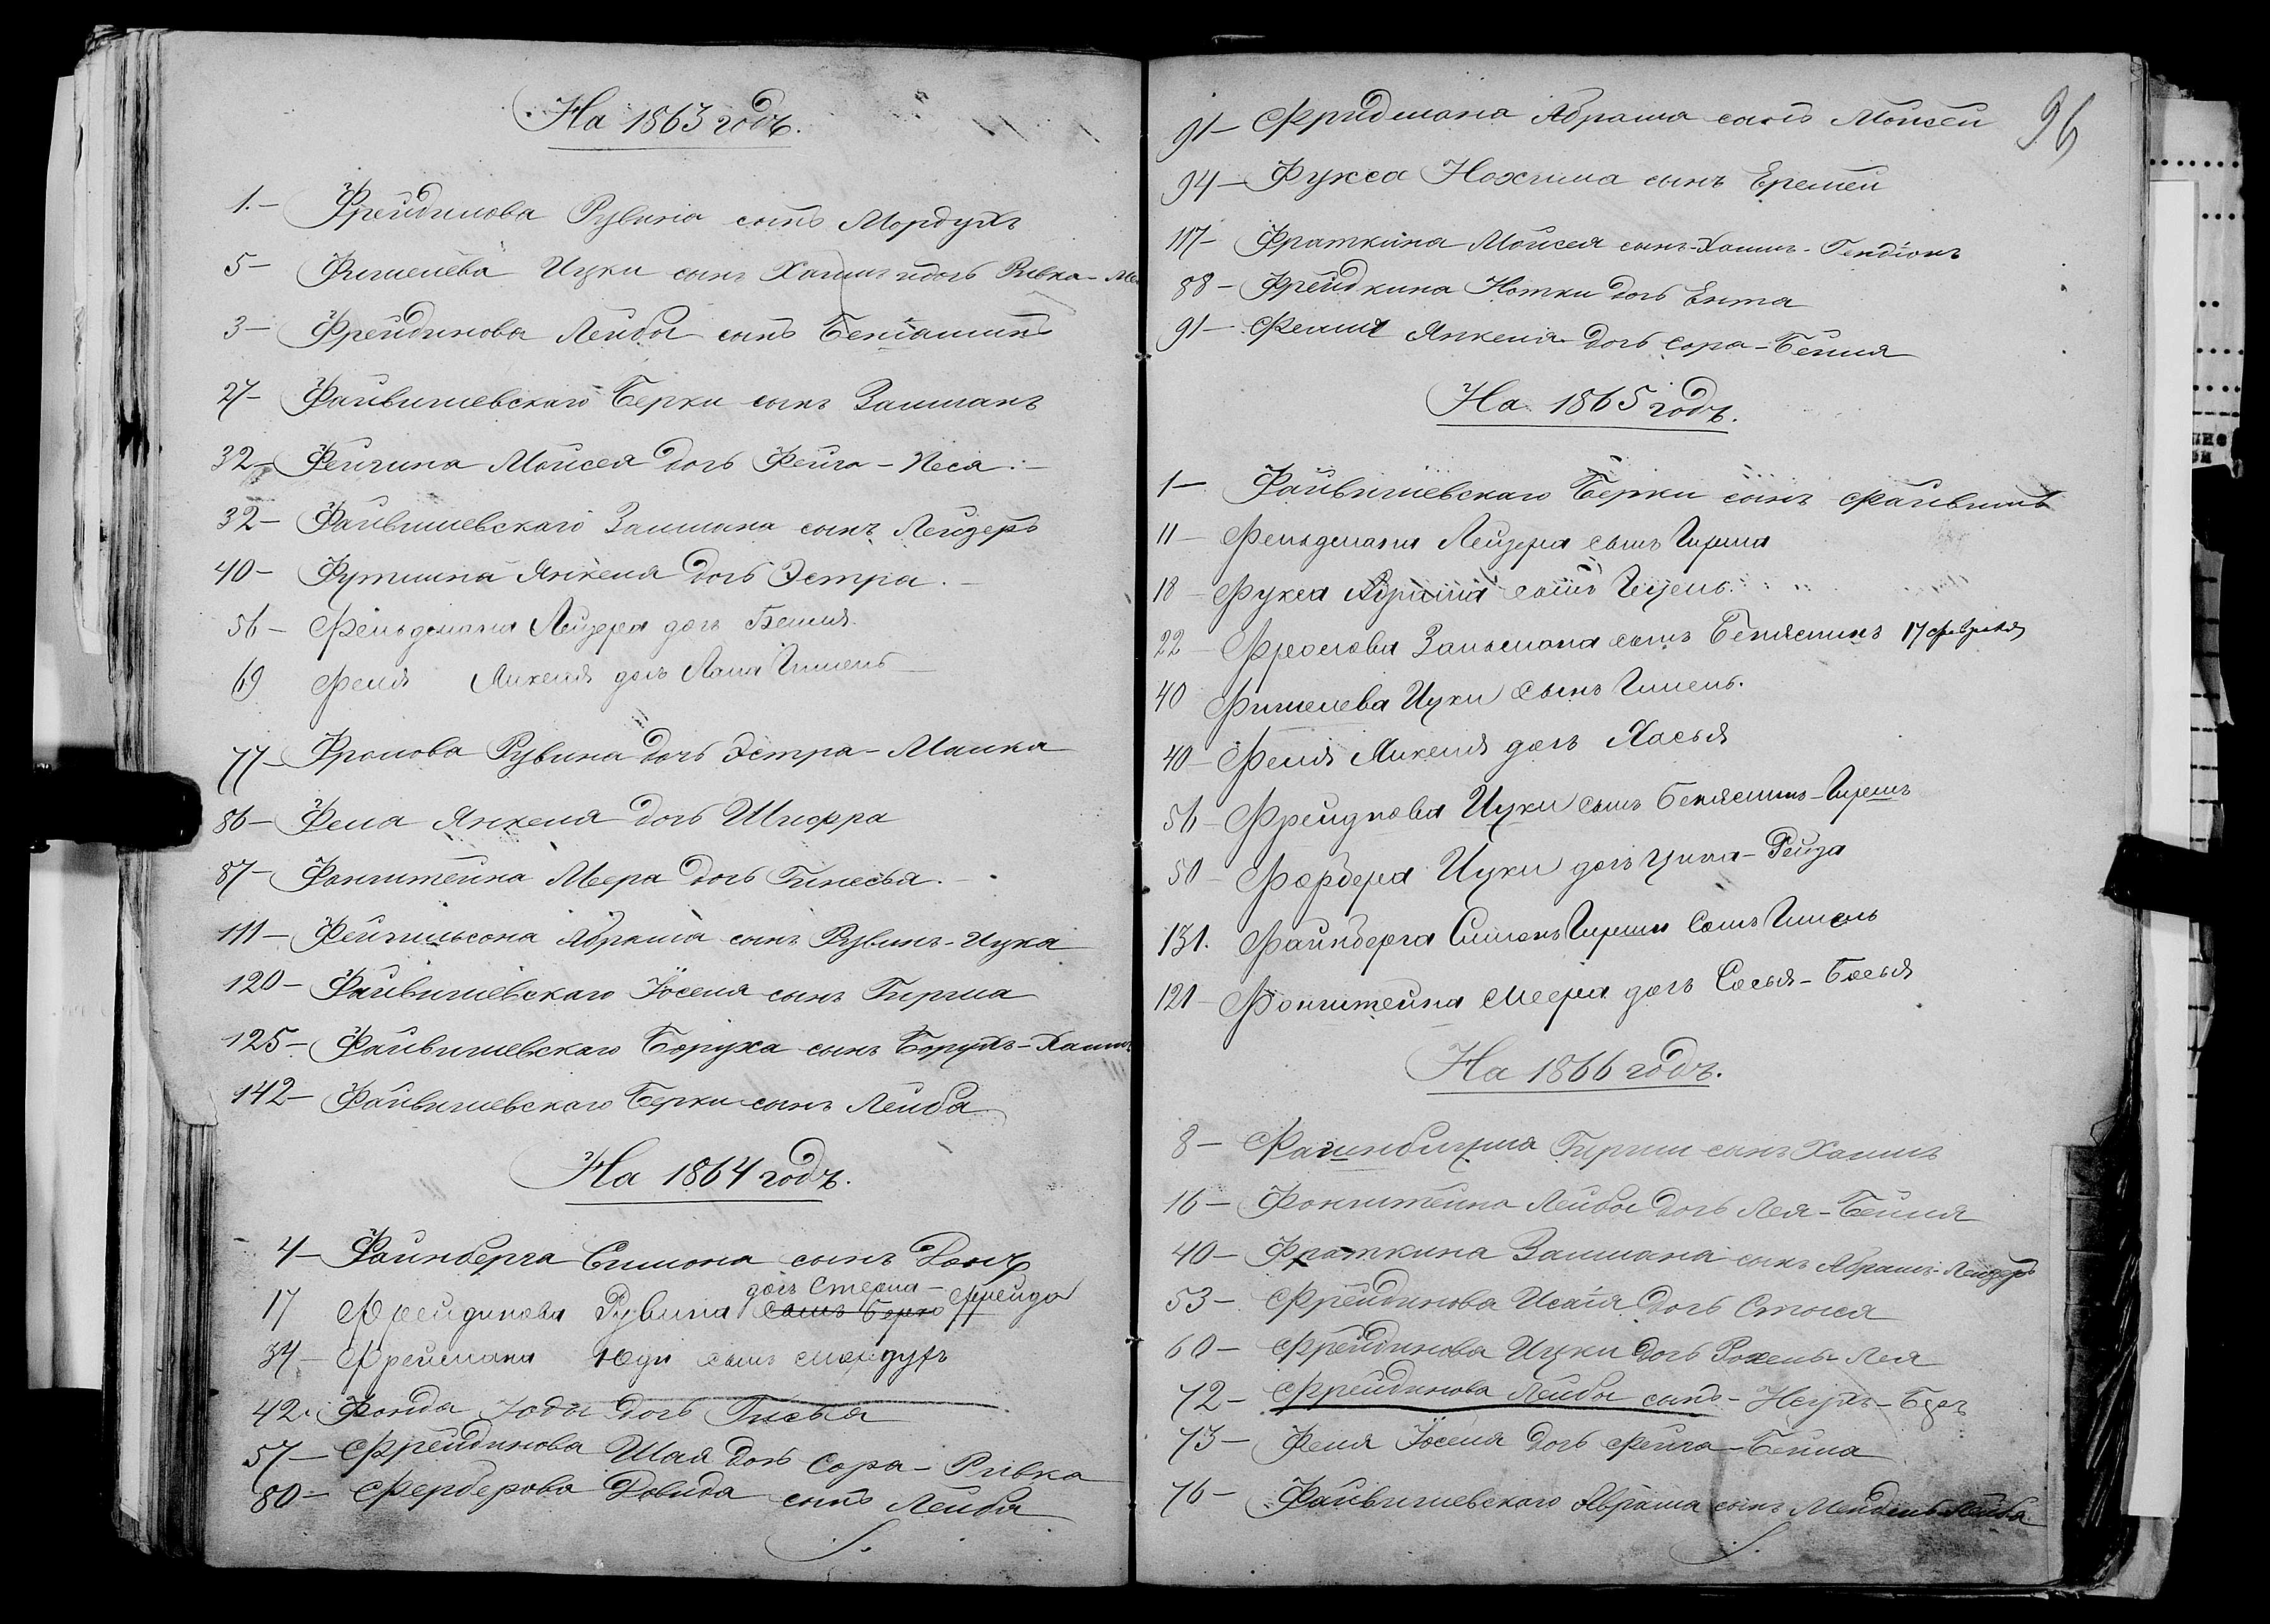 На 1863 годъ.
1.– Фрейдинова Рувина сынъ Мордухъ
5– Фишелева Ицки сынъ Хаимъ и дочь Ривка-
3– Фрейдинова Лейбы сынъ Беніаминъ
27– Файвишевскаго Берки сынъ Залманъ
32– Фейгина Мойсея дочь Фейга-Песя.–
32– Файвишевскаго Залмана сынъ Лейзеръ
40– Футмина Янкеля дочь Эстра.–
56– Фельдмана Лейзера дочь Бейля
69 Феля Янкеля дочь
77– Фролова Рувина дочь Эстра-Малка
86– Фела Янкеля дочь Шифра
87– Фонштейна Меера дочь Гинесья.–
111– Фейгильсона Абрама сынъ Рувинъ-Ицка
120– Файвишевскаго Іоселя сынъ Гирша
125– Файвишевскаго Боруха сынъ Борухъ-Хаимъ
142– Файвишевскаго Берки сынъ Лейба
На 1864 годъ.
4– Файнберга Симона сынъ
дочь Стерна-Фрейда
17 Фрейдинова Рувина сынъ Берко
34– Фреймана Юды сынъ
42. Фонда Юды дочь Гисья
57– Фрейдинова Шая дочь Сора-Ривка
80– Ферберова Довида сынъ Лейба
96
91– Фридмана Абрама сынъ Мойсей
94– Фукса Нохима сынъ Еремей
117– Фраткина Мойсея сынъ-Хаимъ-Гендіонъ
88– Фрейдкина Нотки дочь Ента
91– Феля Янкеля дочь Сора-Бейля
На 1865 годъ.
1– Файвишевскаго Берки сынъ Файвишъ
11– Фельдмана Лейзера сынъ Гирша
18– Фукса Абрама сынъ
22– Фролова Зальмана сынъ Беняминъ 17 февраля
40 Фишелева Ицки сынъ Гимель.
40– Феля Янкеля дочь Хасья
56– Фрейднова Ицки сынъ Беняминъ-Гиршъ
50– Фарбера Ицки дочь Ципа-Рейза
131. Файнберга Симонъ Гирши сынъ Гимель
121– Фонштейна Меера дочь Сосья-Босья
На 1866 годъ.
8– Гирши сынъ Хаимъ
16– Фонштейна Лейбы дочь Лея-Бейля
40– Фраткина Залмана сынъ Абрамъ-Лейзеръ
53– Фрейдинова Исаія дочь Стыся
60– Фрейдинова Ицки дочь Рохель-Лея
72– Фрейдинова Лейбы сынъ-Нсухъ-
73– Феля Іоселя дочь Фейга-Бейла
76– Файвишевскаго Абрама сынъ Мендель-Лейба